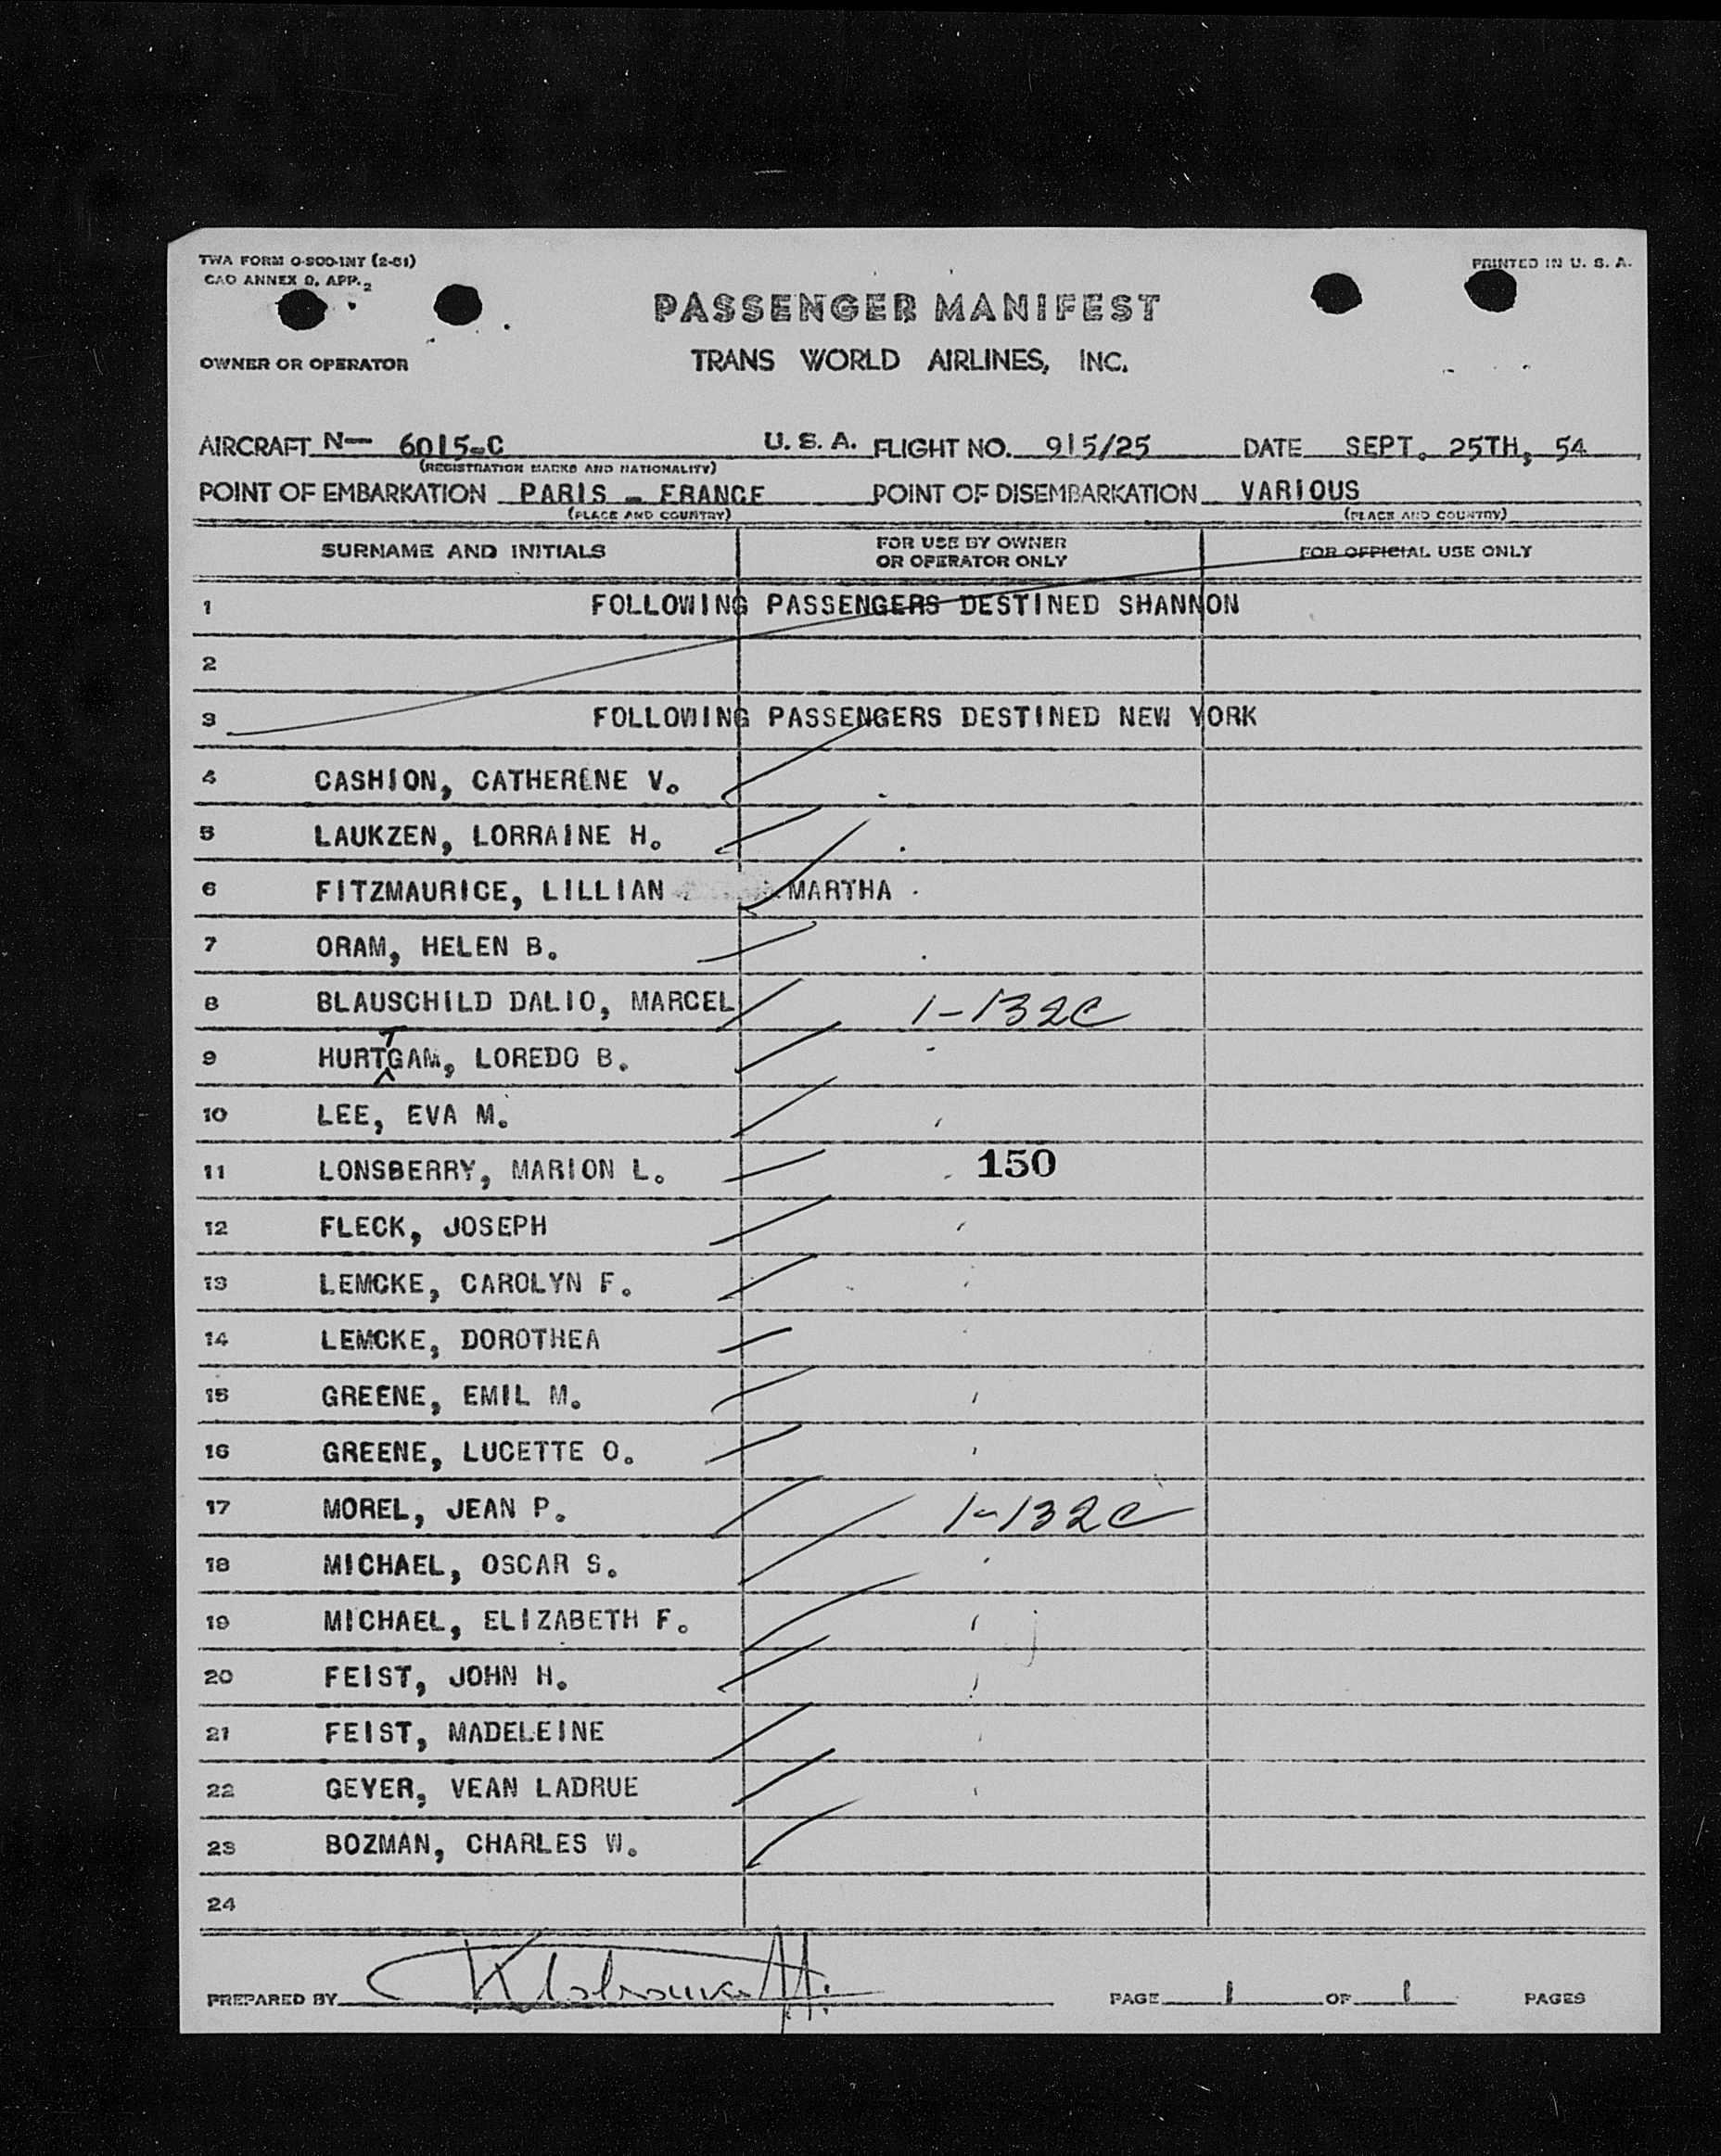 TWA FORM O-900-INT (2-51)
PRINTED IN U. S. A.
CAO ANNEX 9, APP. 2
PASSENGER MANIFEST
OWNER OR OPERATOR TRANS WORLD AIRLINES, INC.
AIRCRAFT N— 6015-C U. S. A. FLIGHT NO. 915/25 DATE SEPT. 25TH, 54
(REGISTRATION MARKS AND NATIONALITY)
POINT OF EMBARKATION PARIS - FRANCE POINT OF DISEMBARKATION VARIOUS
(PLACE AND COUNTRY) (PLACE AND COUNTRY)
SURNAME AND INITIALS FOR USE BY OWNER OR OPERATOR ONLY FOR OFFICIAL USE ONLY
1 FOLLOWING PASSENGERS DESTINED SHANNON
2
3 FOLLOWING PASSENGERS DESTINED NEW YORK
4 CASHION, CATHERINE V.
5 LAUKZEN, LORRAINE H.
6 FITZMAURICE, LILLIAN MARTHA
7 ORAM, HELEN B.
8 BLAUSCHILD DALIO, MARCEL 1-132C
9 HURTTGAM, LOREDO B.
10 LEE, EVA M.
11 LONSBERRY, MARION L. 150
12 FLECK, JOSEPH
13 LEMCKE, CAROLYN F.
14 LEMCKE, DOROTHEA
15 GREENE, EMIL M.
16 GREENE, LUCETTE O.
17 MOREL, JEAN P. 1-132C
18 MICHAEL, OSCAR S.
19 MICHAEL, ELIZABETH F.
20 FEIST, JOHN H.
21 FEIST, MADELEINE
22 GEYER, VEAN LADRUE
23 BOZMAN, CHARLES W.
24
PREPARED BY PAGE 1 OF 1 PAGES